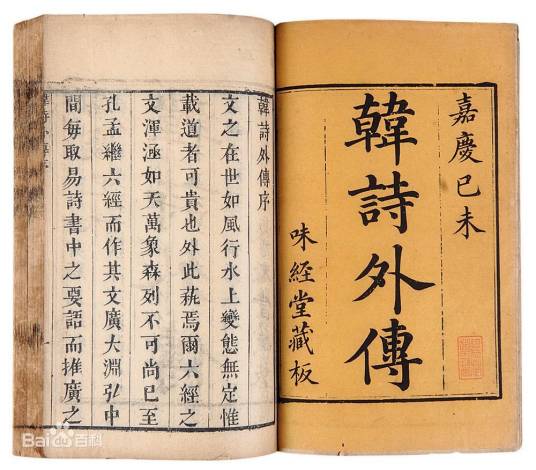 嘉慶己未
韓詩外傳
味經堂藏板
韓詩外傳序
文之在世如風行水上變態無定惟
載道者可貴也外此蓺焉爾六經之
文渾涵如天萬象森列不可尚已至
孔孟繼六經而作其文廣大淵弘中
間每取易詩書中之要語而推廣之
Bai百科